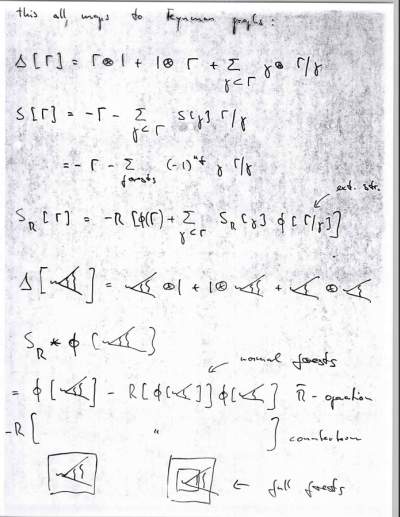 this all maps to Feynman graphs :
Δ[Γ] = Γ⊗1 + 1⊗Γ + Σ γ⊗ Γ/γ
γ⊂Γ
S[Γ] = -Γ - Σ S[γ] Γ/γ
γ⊂Γ
= -Γ - Σ (-1)^nf γ Γ/γ
forests
ext. str.
S_R[Γ] = -R[φ(Γ) + Σ S_R[γ] φ[Γ/γ]]
γ⊂Γ
Δ[ ] = ⊗1 + 1⊗ + ⊗
S_R * φ [ ]
normal forests
= φ[ ] - R[φ[ ]] φ[ ] R̄-operation
-R[ " ] counterterm
← full forests